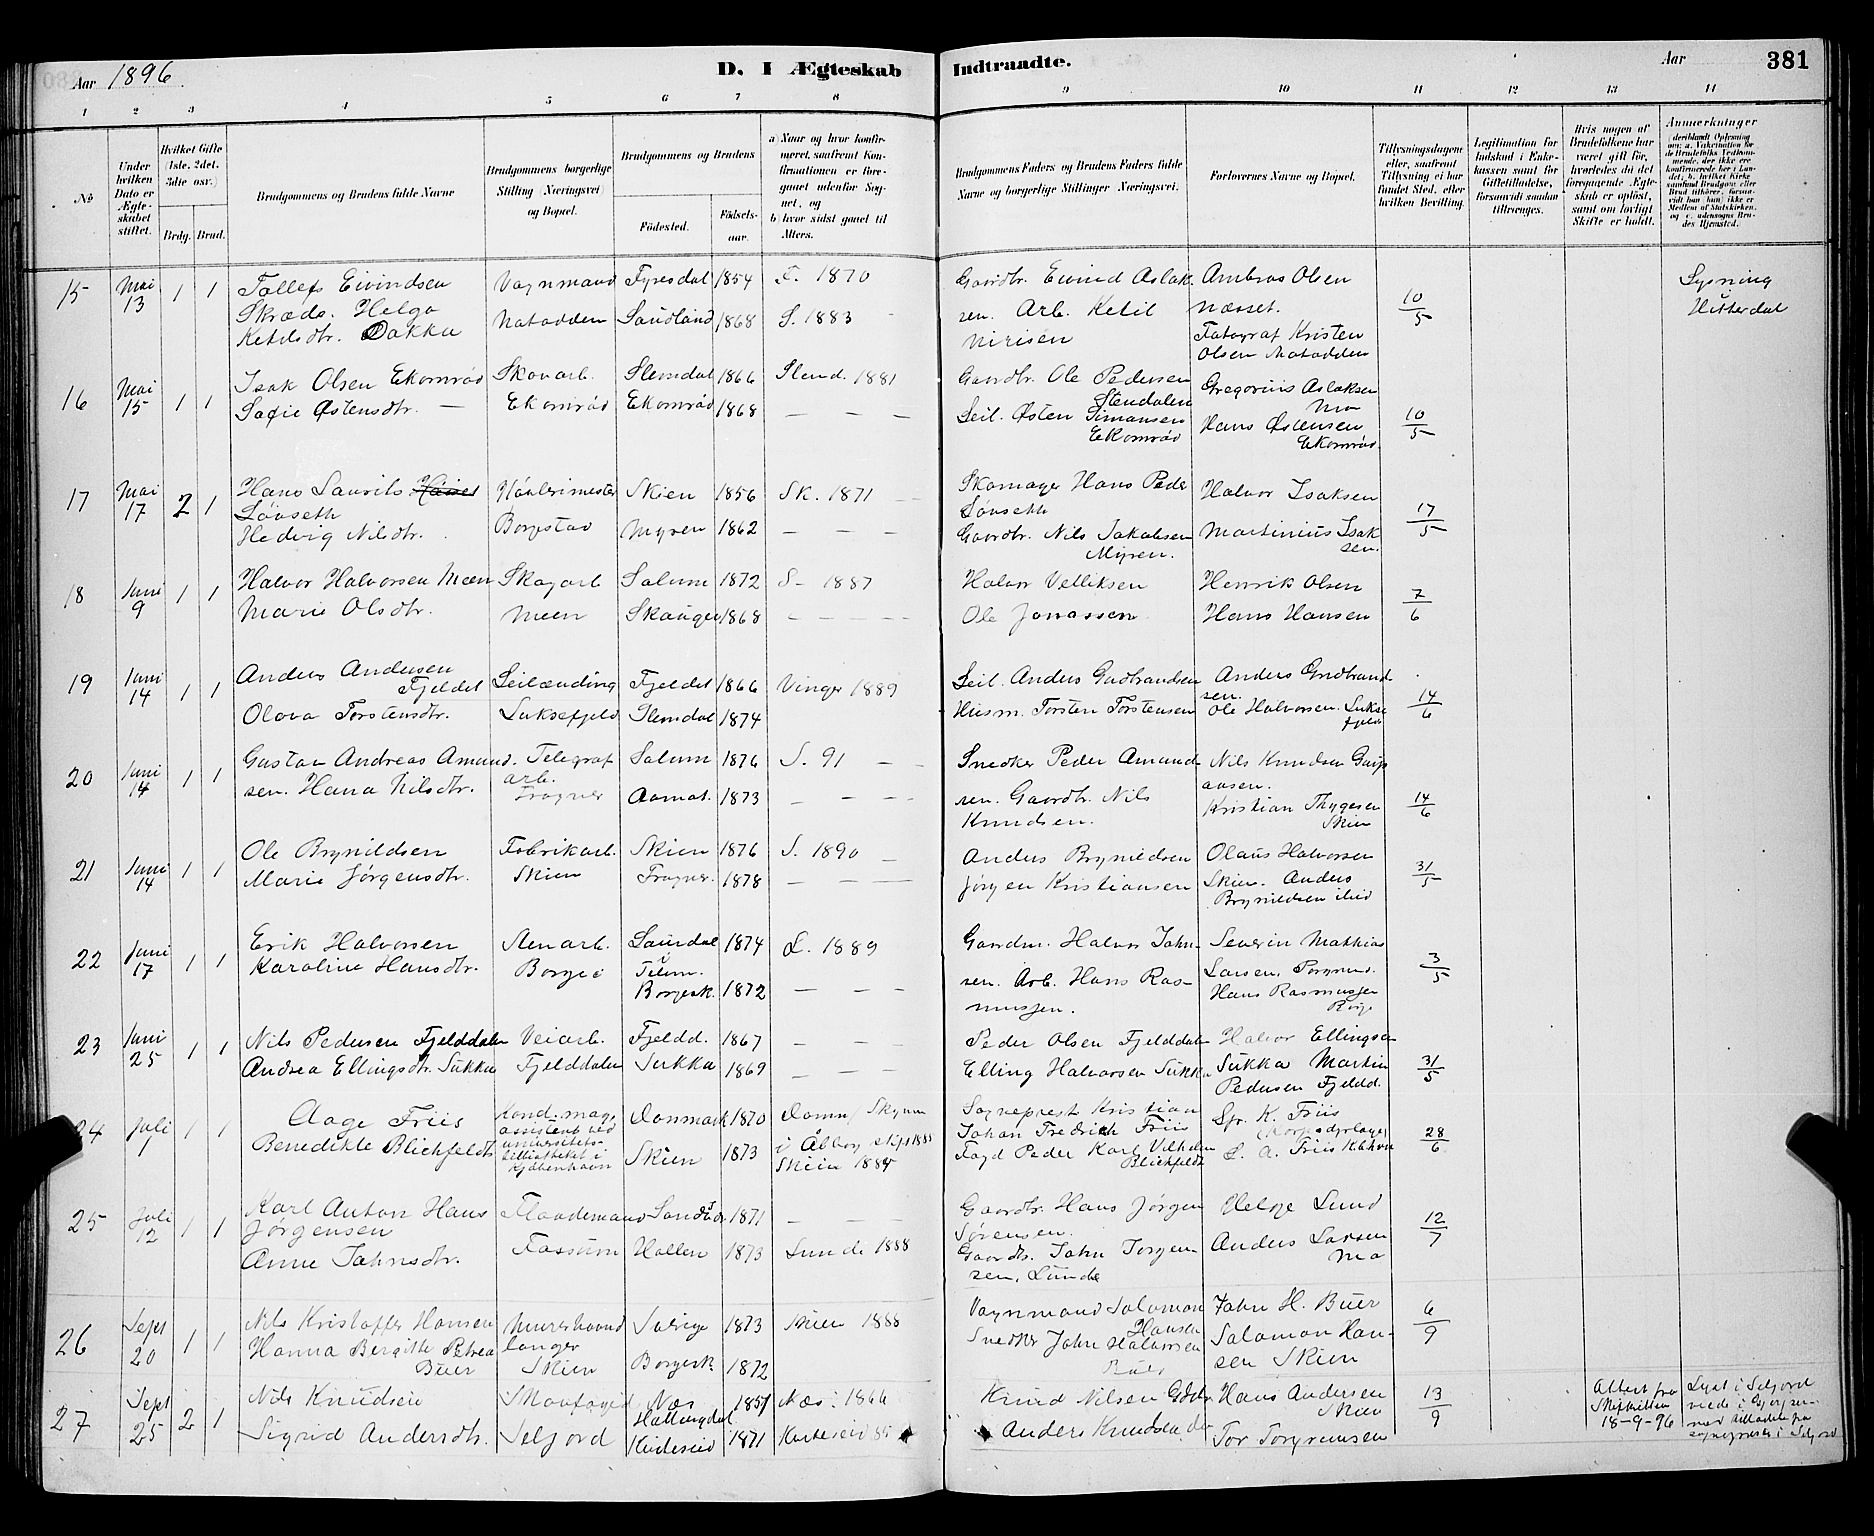 Aar 1896.
D. I Ægteskab Indtraadte.
Aar
381
1 2 3 4 5 6 7 8 9 10 11 12 13 14
No
Under hvilken Dato er Ægteskabet stiftet.
Hvilket Gifte (1ste, 2det, 3die osv.)
Brdg. Brud.
Brudgommens og Brudens fulde Navne
Brudgommens borgerlige Stilling (Næringsvei) og Bopæl.
Brudgommens og Brudens
Fødested.
Fødselsaar.
a) Naar og hvor konfirmeret, saafremt Konfirmationen er foregaaet udenfor Sognet, og
b) hvor sidst gaaet til Alters.
Brudgommens Faders og Brudens Faders fulde Navne og borgerlige Stillinger Næringsvei.
Forlovernes Navne og Bopæl.
Tillysningsdagene eller, saafremt Tillysning ei har fundet Sted, efter hvilken Bevilling.
Legitimation for Indskud i Enkekassen samt for Giftetilladelse, forsaavidt saadan tiltrænges.
Hvis nogen af Brudefolkene har været gift før, hvorledes da det foregaaende Ægteskab er opløst, samt om lovligt Skifte er holdt.
Anmærkninger
15 Mai 13 1 1
Tollefs Eivindsen
Skræds. Helga
Ketilsdtr. Dakka
Vognmand
Notodden
Fyresdal 1854 F. 1870
Sauland 1868 S. 1883
Gaardbr. Eivind Aslak
sen. Arb. Ketil
Ambros Olsen
Næsset.
Fotograf Kristen
Olsen Notodden
10/5
Lysning
Hitterdal
16 Mai 15 1 1
Isak Olsen Ekornrød
Sofie Østensdtr. —
Skovarb.
Ekornrød
Slemdal 1866 Slemd. 1881
Ekornrød 1868 — — —
Gaardbr. Ole Pedersen
Stendalen
Seil. Østen Simonsen
Ekornrød
Gregorius Aslaksen
Mo
Hans Østensen
Ekornrød.
10/5
17 Mai 17 2 1
Hans Laurits
Løvseth
Hedvig Nilsdtr.
Borgstad
Skien 1856 Sk. 1871
Myren 1862 — — —
Skomager Hans Peder
Løvseth
Gaardbr. Nils Jakobsen
Myren.
Halvor Isaksen
Martinius Isak
sen.
17/5
18 Juni 9 1 1
Halvor Halvorsen Meen
Marie Olsdtr.
Skogarb
Meen
Solum 1872 S — 1887
Skauger 1868 — — —
Halvor Velliksen
Ole Jonassen
Henrik Olsen
Hans Hansen
7/6
19 Juni 14 1 1
Anders Andersen
Fjeldet
Olova Torstensdtr.
Leilænding
Luksefjeld
Fjeldet 1866 Vinger 1889
Slemdal 1874
Seil. Anders Gudbrandsen
Husm. Torsten Torstensen
Anders Gudbrand
sen.
Ole Halvorsen. Lukse
fjeld
14/6
20 Juni 14 1 1
Gustav Andreas Amund
sen. Hana Nilsdtr.
Telegraf
arb.
Frogner
Solum 1876 S. 91 — —
Aamot. 1873 — — —
Snedker Peder Amund
sen. Gaardbr. Nils
Knudsen.
Nils Knudsen
Kristian Thygesen
Skien
14/6
21 Juni 14 1 1
Ole Brynildsen
Marie Jørgensdtr.
Fabrikarb.
Skien
Skien 1876 S. 1890 —
Frogner. 1878 — — —
Anders Brynildsen
Jørgen Kristiansen
Olaus Halvorsen
Skien. Anders
Brynildsen ibid
31/5
22 Juni 17 1 1
Erik Halvorsen
Karoline Hansdtr.
Stenarb.
Borge
Saurdal 1874 L. 1889
i Telem.
Borgesk. 1872 — — —
Gaardm. Halvor John
sen. Arb. Hans Ras-
mussen.
Severin Mathias
Larsen, Porsgrund.
Hans Rasmussen
3/5
23 Juni 25 1 1
Nils Pedersen Fjelddalen
Andrea Ellingsdtr. Sukka
Veiarb.
Fjelddalen
Fjeldd. 1867 — — —
Sukka 1869 — — —
Peder Olsen Fjelddalen
Elling Halvorsen Sukka
Halvor Ellingsen
Sukka Martin
Pedersen Fjeldd.
31/5
24 Juli 1 1 1
Aage Friis
Benedikte Blichfeldt
kand. mag.
assistent ved
universitets-
bibliotheket i
Kjøbenhavn
Danmark 1870
Skien 1873
i Ålborg
Skien 1884
Sogneprest Kristian
Johan Fredrich Friis
Fogd Peder Karl Vilhelm
Blichfeldt
Spr. K. Friis
L. A. Friis
28/6
25 Juli 12 1 1
Karl Anton Hans
Jørgensen
Anne Johnsdtr.
Fossum
1871 — — —
Hollen 1873 Lunde 1888
Gaardbr. Hans Jørgen
Sørensen.
Gaardb. John Jørgen
sen, Lunde
Helge Lund
Anders Larsen
Mo
12/7
26 Sept 20 1 1
Nils Kristoffer Hansen
Hanna Bergitte Petrea
Buer
Murerhaand
langer
Skien
Sverige 1873 Skien 1888
Borgesk. 1872
Vognmand Salomon
Hansen
Snedker John Halvorsen
Buer
John H. Buer
Salomon Han-
sen Skien
6/9
27 Sept 25 2 1
Nils Knudsen
Sigrid Andersdtr.
Skovfoged
Seljord
Næs 1851 Næs. 1866
Hallingdal
Kviteseid 1871 Kviteseid 85
Knud Nilsen Gdbr.
Anders Knudsen
Hans Andersen
Skien
Tor Torgrimsen
13/9
Attest fra
Skifteretten
18-9-96
Lyst i Seljord
viede i Gjerpen
med tilladelse fra
sognepresten i Seljord